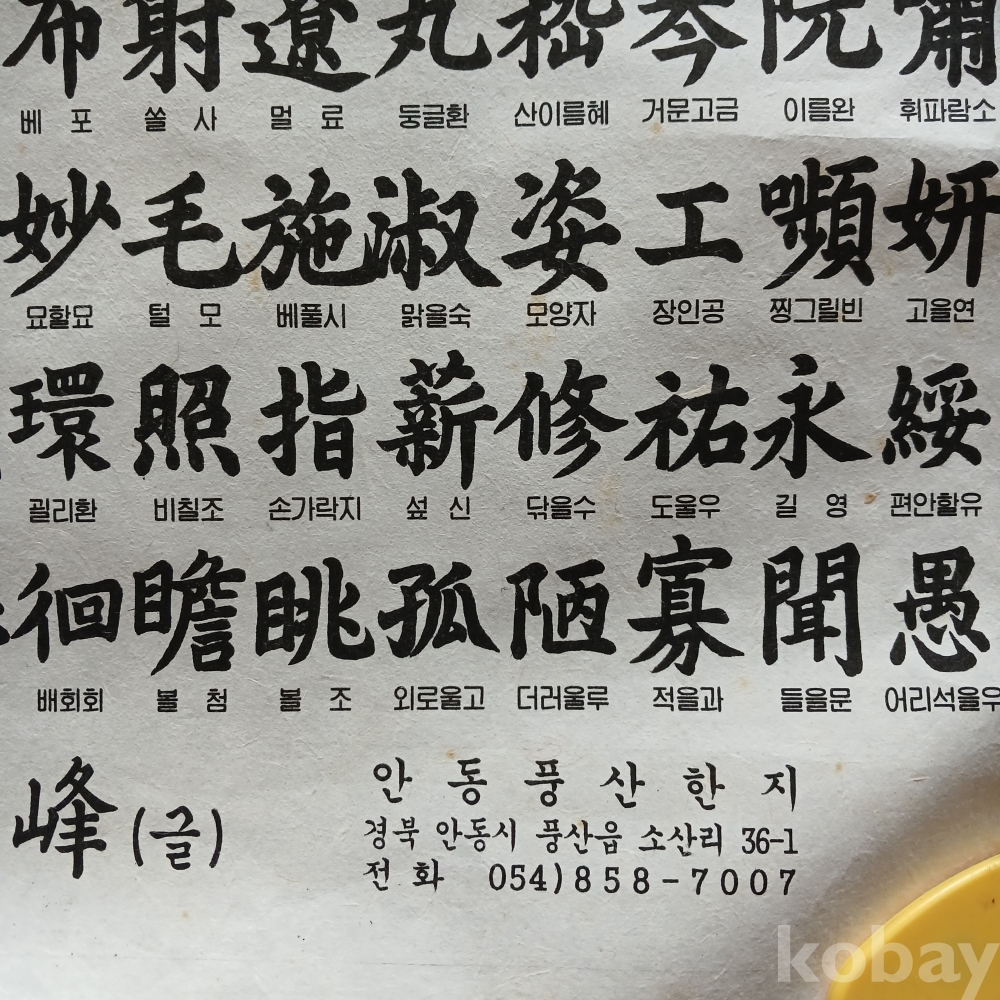 布射遼丸嵇琴阮嘯
베포 쏠사 멀료 둥글환 산이름혜 거문고금 이름완 휘파람소
妙毛施淑姿工嚬妍
묘할묘 털모 베풀시 맑을숙 모양자 장인공 찡그릴빈 고을연
環照指薪修祐永綏
괼리환 비칠조 손가락지 섶신 닦을수 도울우 길영 편안할유
徊瞻眺孤陋寡聞愚
배회회 볼첨 볼조 외로울고 더러울루 적을과 들을문 어리석을우
峰(글)
안동풍산한지
경북 안동시 풍산읍 소산리 36-1
전화 054)858-7007
kobay